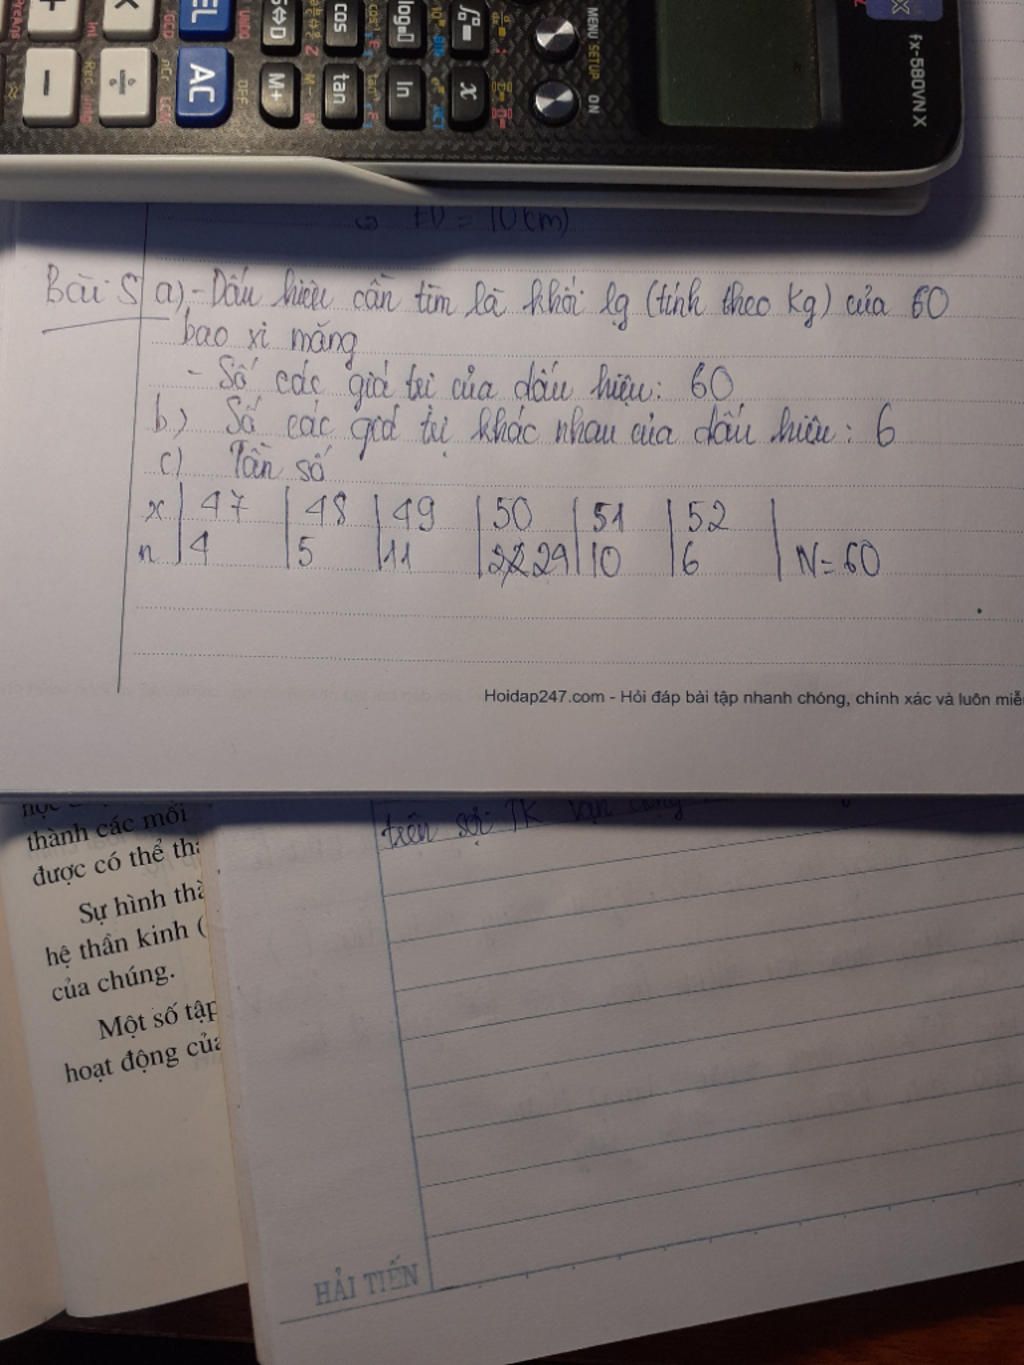 MENU SETUP ON
fx-580VN X
S⇔D cos
AC M+ tan ln x
OFF
= 10 (cm)
Bài 5 a) - Dấu hiệu cần tìm là khối lg (tính theo kg) của 60
bao xi măng
- Số các giá trị của dấu hiệu: 60
b) Số các giá trị khác nhau của dấu hiệu: 6
c) Tần số
x | 47 | 48 | 49 | 50 | 51 | 52 |
n | 4 | 5 | 11 | 22 29 | 10 | 6 | N = 60
Hoidap247.com - Hỏi đáp bài tập nhanh chóng, chính xác và luôn miễ
thành các mối
được có thể th
Sự hình th
hệ thần kinh (
của chúng.
Một số tập
hoạt động củ
trên sợi TK vận
HẢI TIẾN